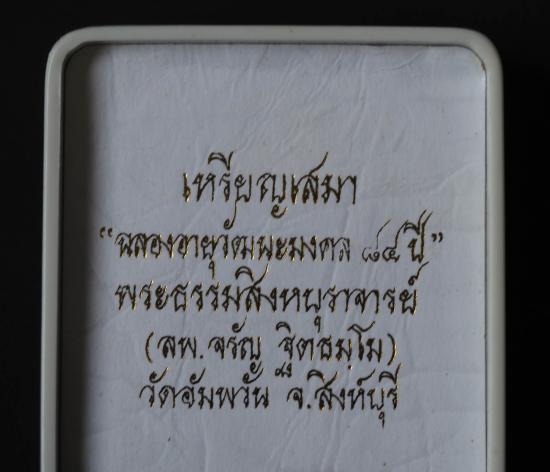 เหรียญเสมา
“ฉลองอายุวัฒนะมงคล ๘๔ ปี”
พระธรรมสิงหบุราจารย์
(ลพ. จรัญ ฐิตธมฺโม)
วัดอัมพวัน จ.สิงห์บุรี